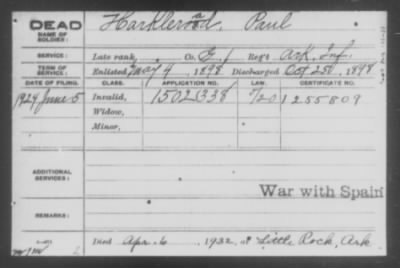 DEAD Harkleroad, Paul
NAME OF SOLDIER:
SERVICE: Late rank, Co. E, 1 Reg't Ark. Inf.
TERM OF SERVICE: Enlisted May 4, 1898 Discharged Oct 25, 1898
DATE OF FILING. CLASS. APPLICATION NO. LAW. CERTIFICATE NO.
1924 June 5 Invalid, 1502338 1255809
Widow,
Minor,
ADDITIONAL SERVICES:
War with Spain
REMARKS:
Died Apr. 6, 1932, at Little Rock, Ark